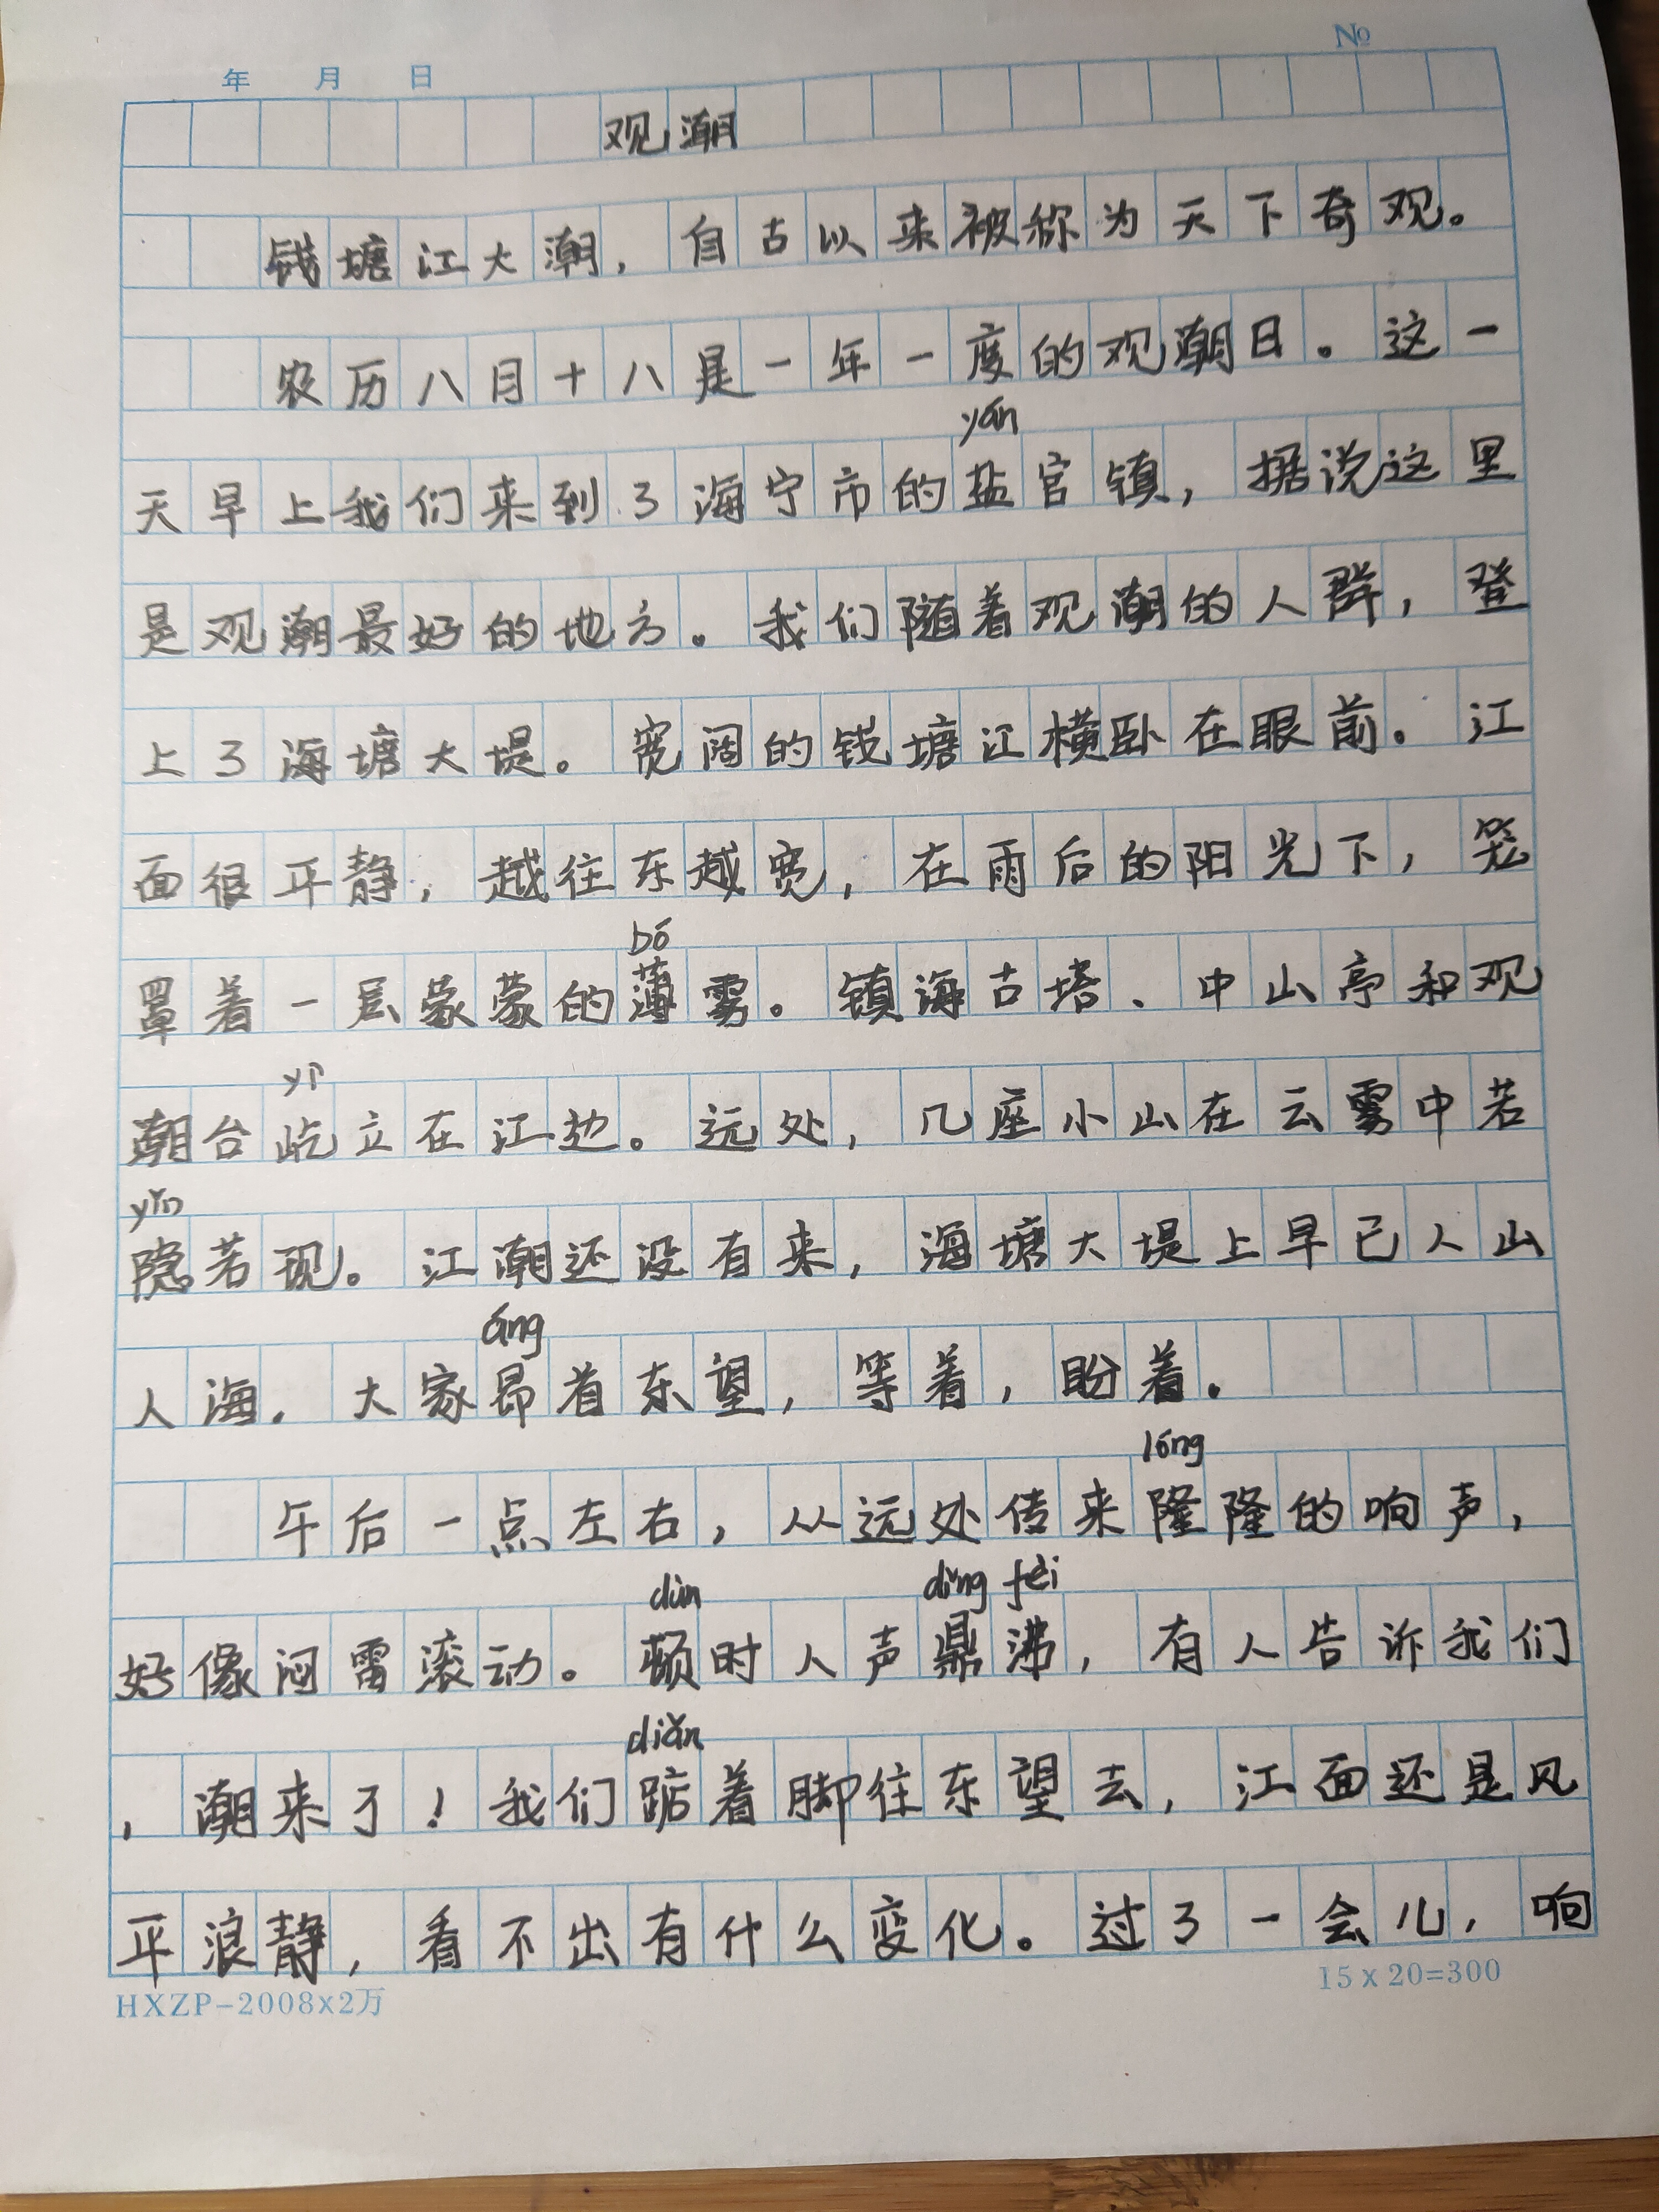 No
年 月 日
观潮
钱塘江大潮，自古以来被称为天下奇观。
农历八月十八是一年一度的观潮日。这一
yán
天早上我们来到了海宁市的盐官镇，据说这里
是观潮最好的地方。我们随着观潮的人群，登
上了海塘大堤。宽阔的钱塘江横卧在眼前。江
面很平静，越往东越宽，在雨后的阳光下，笼
bó
罩着一层蒙蒙的薄雾。镇海古塔、中山亭和观
yì
潮台屹立在江边。远处，几座小山在云雾中若
yǐn
隐若现。江潮还没有来，海塘大堤上早已人山
áng
人海。大家昂首东望，等着，盼着。
lóng
午后一点左右，从远处传来隆隆的响声，
dùn dǐng fèi
好像闷雷滚动。顿时人声鼎沸，有人告诉我们
diǎn
，潮来了！我们踮着脚往东望去，江面还是风
平浪静，看不出有什么变化。过了一会儿，响
HXZP-2008x2万 15x20=300